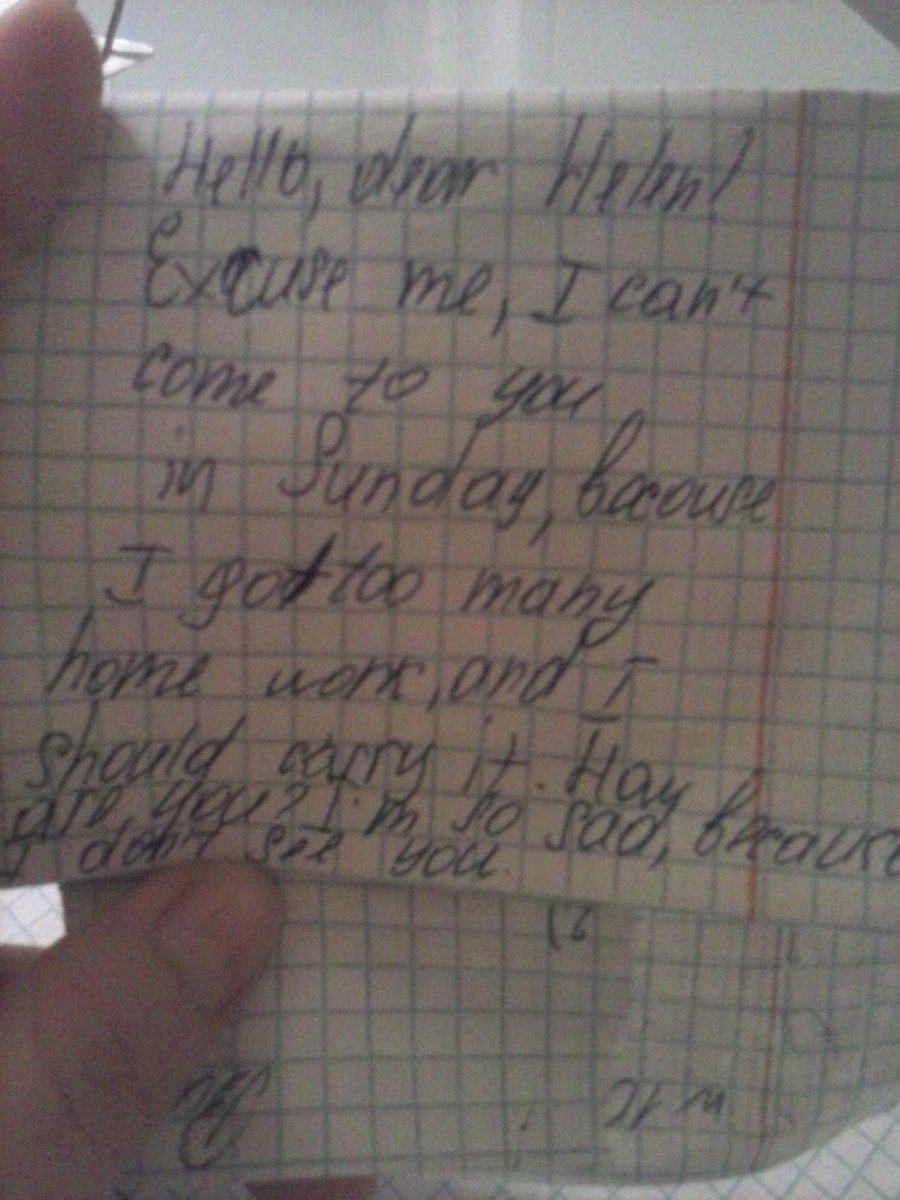 Hello, dear Helen!
Excuse me, I can't
come to you
in Sunday, becouse
I got too many
home work, and I
should carry it. Hay
are you? I'm so sad, because
I don't see you.
2)